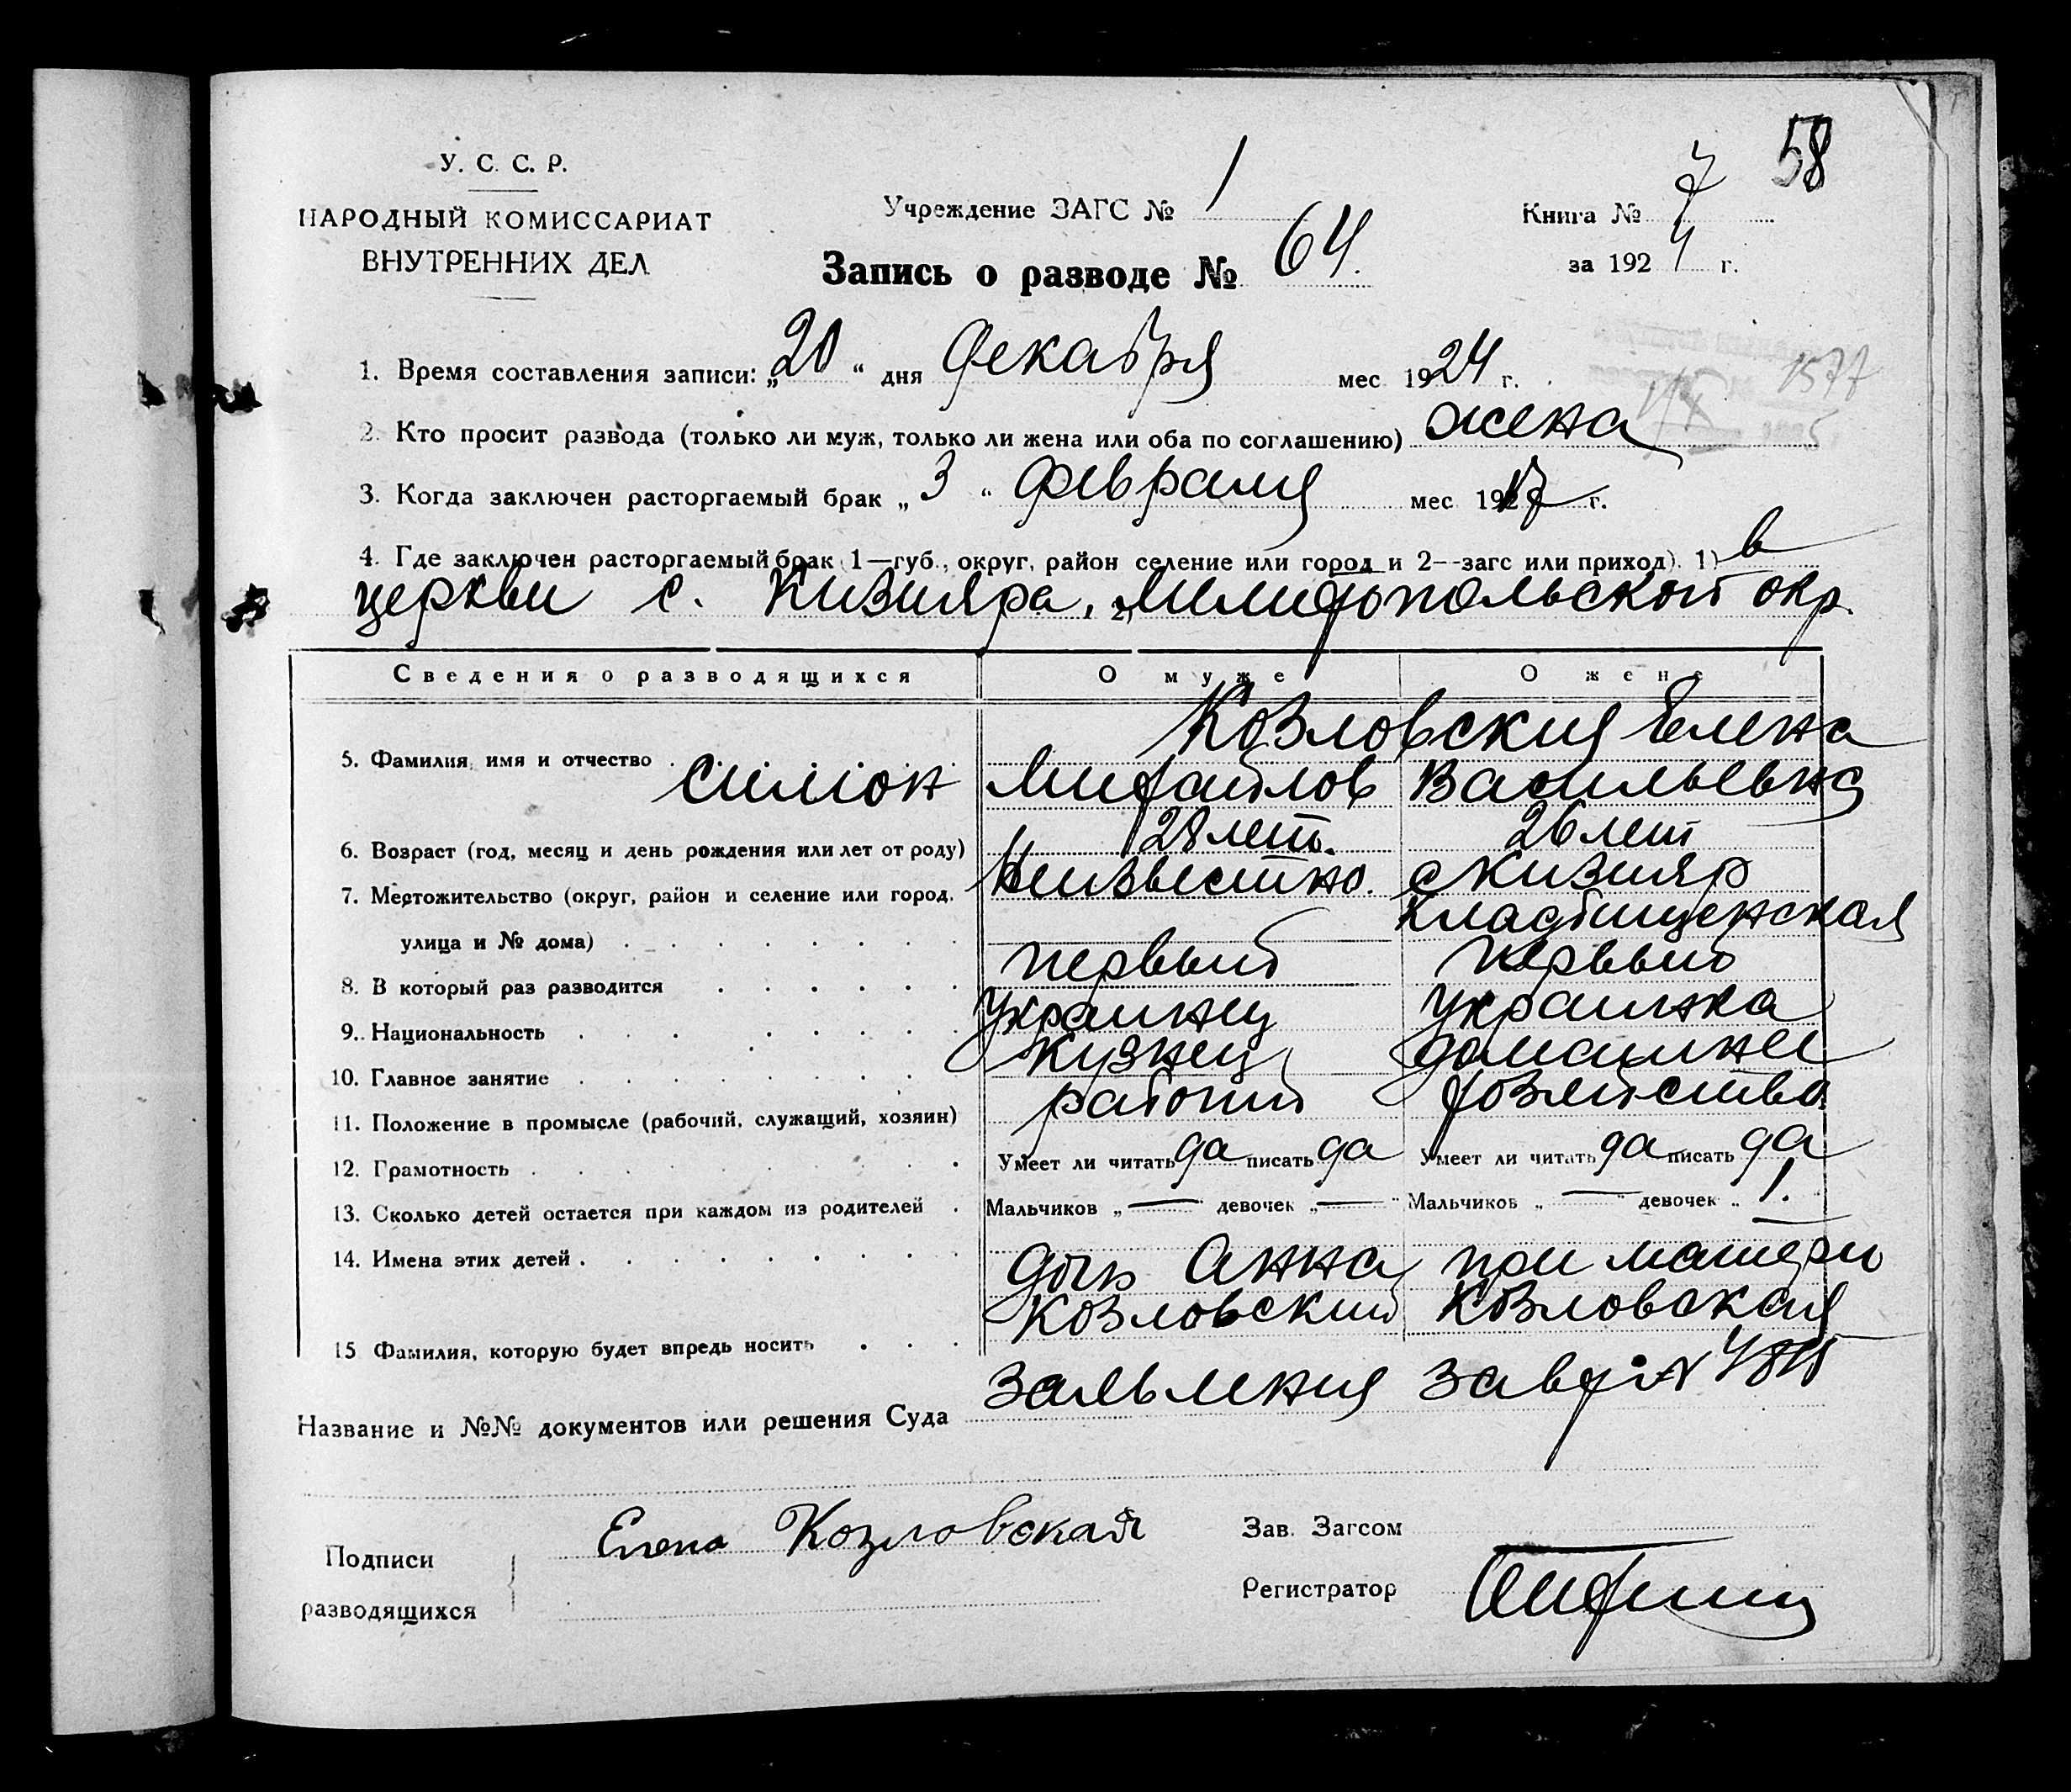 58
У. С. С. Р.
НАРОДНЫЙ КОМИССАРИАТ
ВНУТРЕННИХ ДЕЛ
Учреждение ЗАГС № 1
Книга № 7
за 1924 г.
Запись о разводе № 64.
1. Время составления записи: „20“ дня декабря мес 1924 г.
1577
2. Кто просит развода (только ли муж, только ли жена или оба по соглашению) жена
3. Когда заключен расторгаемый брак „3“ февраля мес 1917 г.
4. Где заключен расторгаемый брак (1—губ., округ, район селение или город и 2--загс или приход). 1) в
церкви с. Кизияра, 2) Мелитопольской окр.
Сведения о разводящихся О муже О жене
Козловския Елена
5. Фамилия, имя и отчество Симон Михайлов Васильевна
6. Возраст (год, месяц и день рождения или лет от роду) 28 лет. 26 лет
7. Местожительство (округ, район и селение или город, Неизвестно. с Кизияр
улица и № дома) Кладбищенская
8. В который раз разводится первый первый
9. Национальность украинец украинка
10. Главное занятие кузнец домашнее
11. Положение в промысле (рабочий, служащий, хозяин) рабочий хозяйство
12. Грамотность Умеет ли читать да писать да Умеет ли читать да писать да
13. Сколько детей остается при каждом из родителей Мальчиков „— девочек „—" Мальчиков „—" девочек „1.
14. Имена этих детей дочь Анна при матери
15 Фамилия, которую будет впредь носить Козловский Козловская
Название и №№ документов или решения Суда
Подписи
разводящихся
Елена Козловская
Зав. Загсом
Регистратор